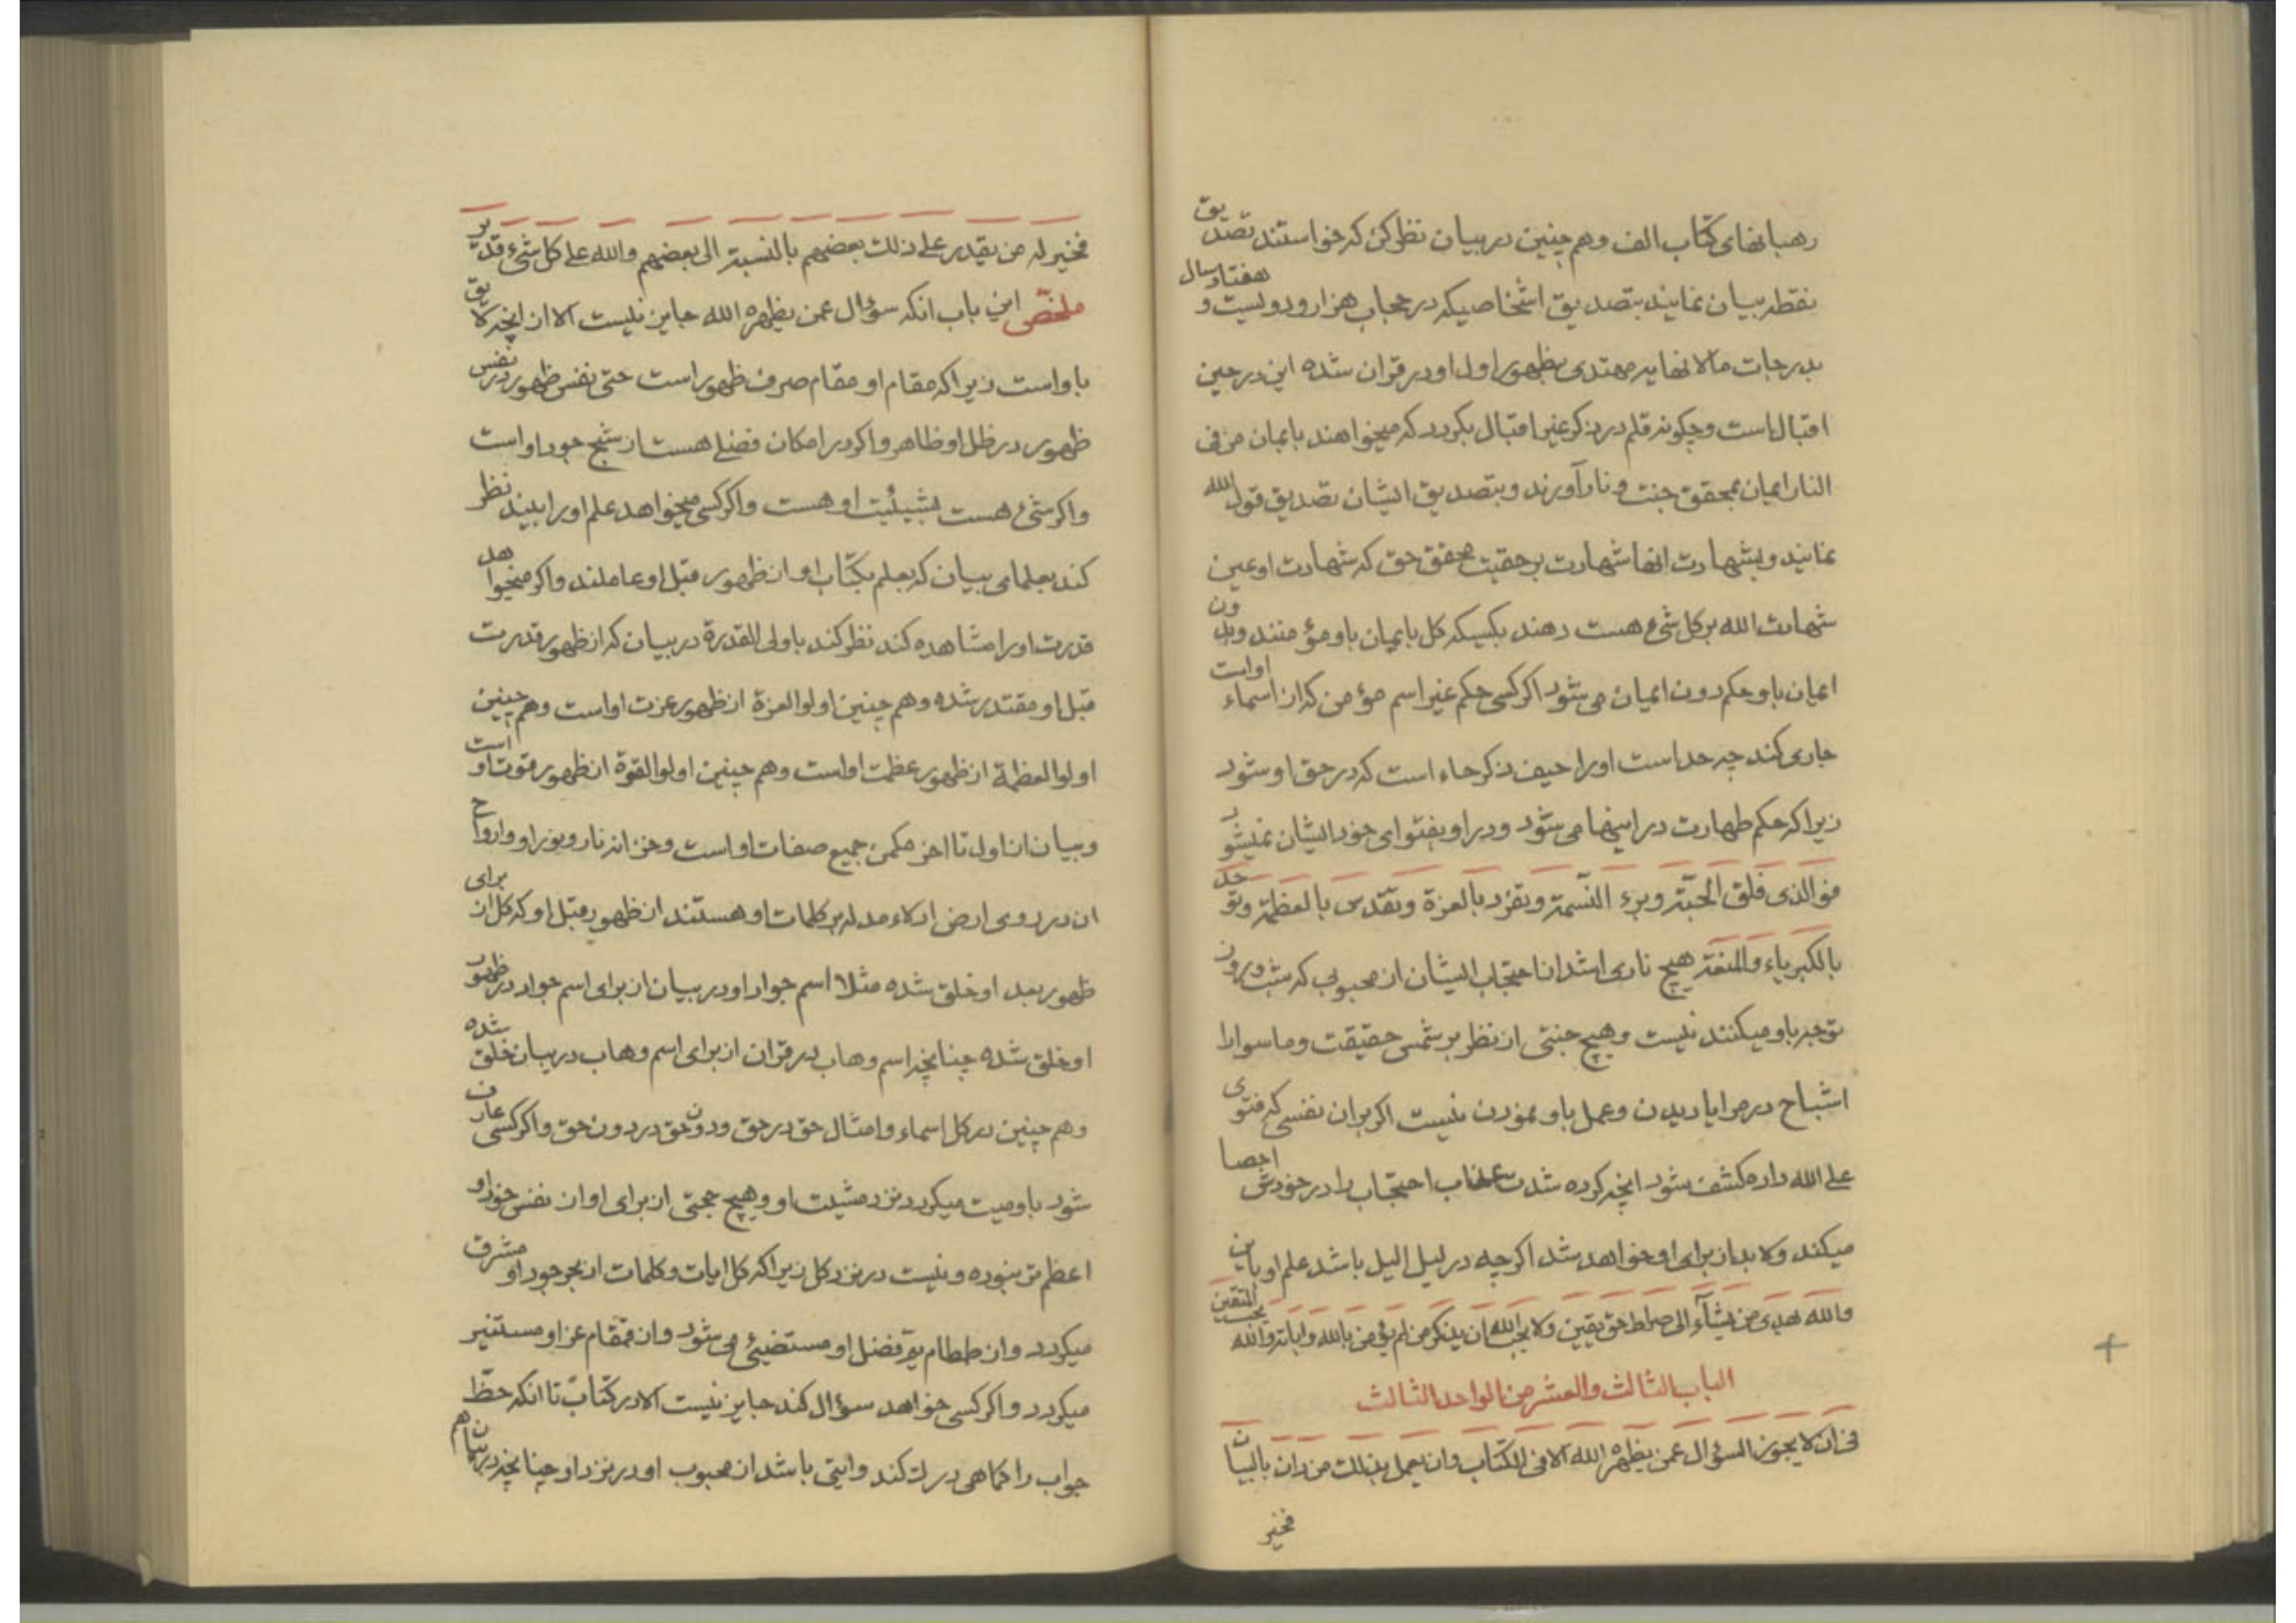 رهبانهای کتاب الف وهم چنین در بیان نظر کن که خواستند تصدیق
نقطه بیان نمایند بتصدیق اشخاصیکه در حجاب هزار و دولیست و هفتاد سال
بدرجات مالانهایه مهتدی بظهور اول او در قران شده این در حین
اقبال است وچکونه قلم در ذکر غیر اقبال بکردد که میخواهند بایمان من فی
النار ایمان بمحقق جنت و نار آورند وبتصدیق ایشان تصدیق قول الله
نمایند وبشهادت انها شهادت برحقیت محقق حق که شهادت او عین
شهادت الله برکل شیء هست دهند بکسیکه کل بایمان باو مؤمنند وبدون
ایمان باو حکم دون ایمان می شود اکر کسی حکم غیر اسم مؤمن که از اسماء او است
جاری کند چه حد است اورا حیف ذکر حاء است که در حق او شود
زیرا که حکم طهارت در اینها می شود ودر او بفتوای خود ایشان نمیشود
فوالذی فلق الحبّة وبرء النّسمة وتفرّد بالعزة وتقدّس بالعظمة وتوحد
بالکبریاء والمنعة هیچ ناری اشد از احتجاب ایشان از محبوبی که شب وروز
توجه باو میکنند نیست وهیچ جنتی از نظر بر شمس حقیقت وماسوا را
اشباح در مرایا دیدن وعمل باو نمودن نیست اکر بران نفسی که فتوی
علی الله داده کشف شود انچه کرده شدت عذاب احتجاب را در خودش احصا
میکند ولابد از برای او خواهد شد اکرچه در لیل الیل باشد علم او باین
والله یهدی من یشآء الی صراط حق یقین ولا یحب الله ان یذکر من لم یؤمن بالله وایاته والله یحب المتقین
الباب الثالث والعشر من الواحد الثالث
فی ان لا یجوز السؤال عمن یظهره الله الا فی الکتاب وان یعمل بذلک من دان بالبیان
فخیر
فخیر له من یقدر علی ذلک بعضهم بالنسبة الی بعضهم والله علی کل شیء قدیر
ملخص این باب انکه سؤال عمن یظهره الله جایز نیست الا از انچه لایق
باو است زیرا که مقام او مقام صرف ظهور است حتی نفس ظهور در نفس
ظهور در ظل او ظاهر واکر در امکان فضلی هست از شبح جود او است
واکر شیء هست بشیئیت او هست واکر کسی میخواهد علم اورا ببیند نظر
کند بعلمای بیان که بعلم بکتاب او از ظهور قبل او عاملند واکر میخواهد
قدرت اورا مشاهده کند نظر کند باولی القدرة در بیان که از ظهور قدرت
قبل او مقتدر شده وهم چنین اولوا العزة از ظهور عزت او است وهم چنین
اولوا العظمة از ظهور عظمت او است وهم چنین اولوا القوة از ظهور قوت او است
وبیان از اول تا اخر مکمن جمیع صفات او است وخزانه نار ونور او وارواح
ان در روی ارض ادلاء مدله بر کلمات او هستند از ظهور قبل او که کل از برای
ظهور بعد او خلق شده مثلا اسم جواد او در بیان از برای اسم جواد در ظهور
او خلق شده چنانچه اسم وهاب در قران از برای اسم وهاب در بیان خلق شده
وهم چنین در کل اسماء وامثال حق در حق ودون حق در دون حق واکر کسی عارف
شود باو میت میکردد نزد مشیت او وهیچ حجتی از برای او از نفس خود او
اعظم تر نبوده ونیست در نزد کل زیرا که کل ایات وکلمات از بحر جود او مشرق
میکردد واز طمطام یمّ فضل او مستضیئی می شود واز قمقام عز او مستنیر
میکردد واکر کسی خواهد سؤال کند جایز نیست الا در کتاب تا انکه حظّ
جواب را کماهی درک کند وایتی باشد از محبوب او در نزد او چنانچه در